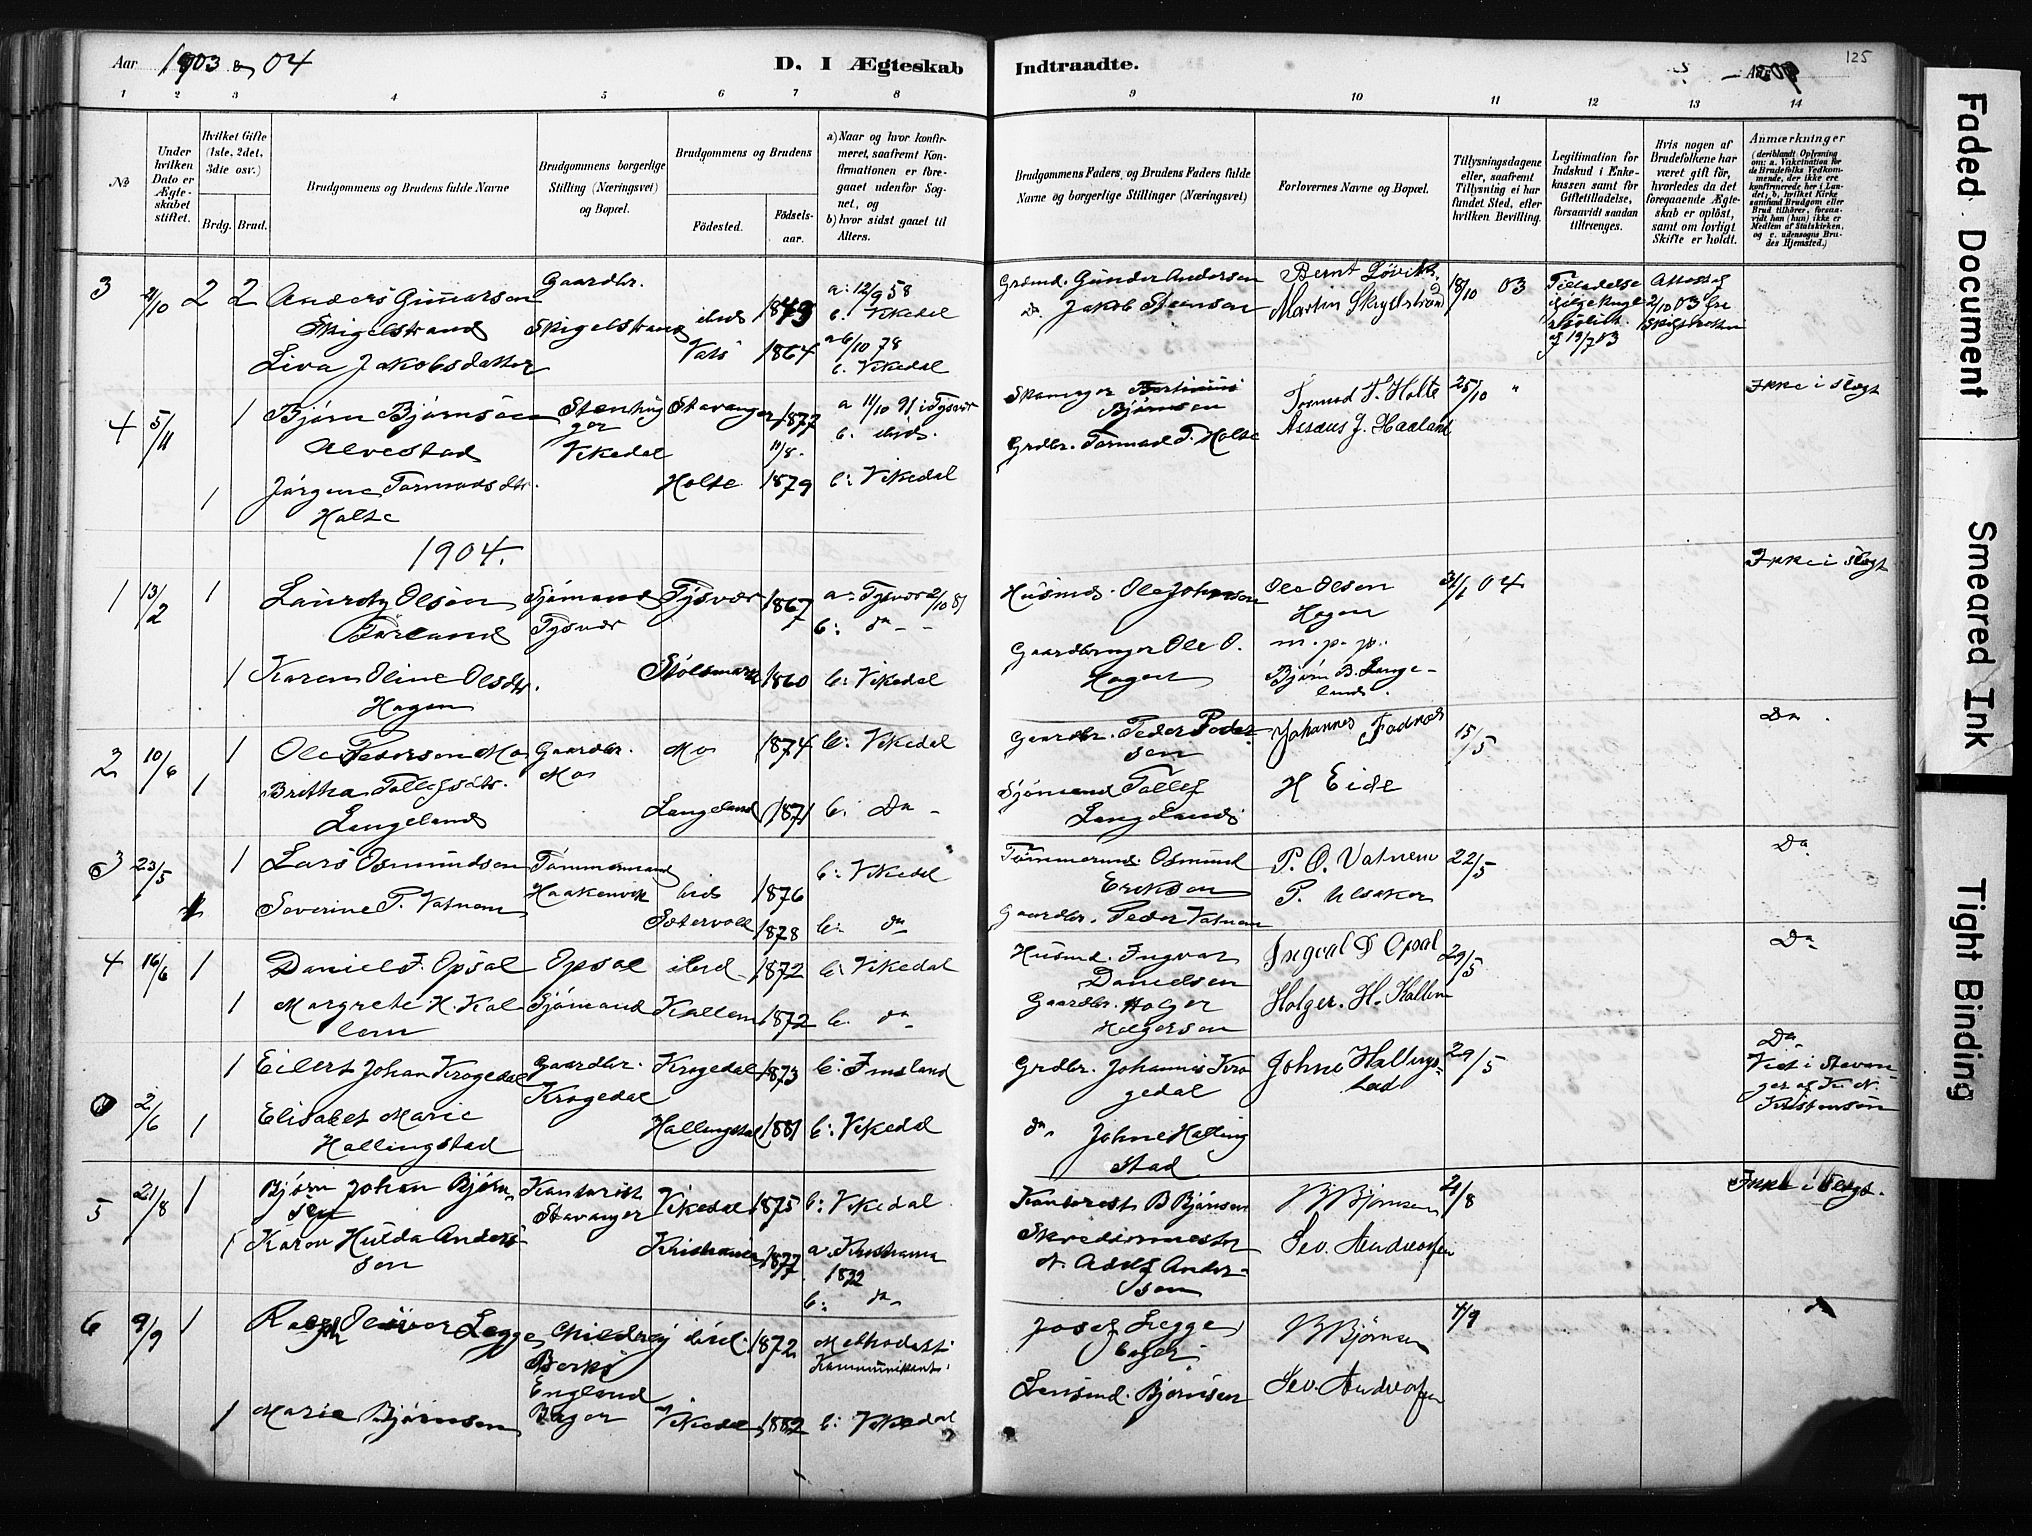 Aar 1903 & 04
D. I Ægteskab
Indtraadte.
125
1 2 3 4 5 6 7 8
9 10 11 12 13 14
No
Under hvilken Dato er Ægteskabet stiftet.
Hvilket Gifte (1ste, 2det, 3die osv.)
Brdg. Brud.
Brudgommens og Brudens fulde Navne
Brudgommens borgerlige Stilling (Næringsvei) og Bopæl.
Brudgommens og Brudens
Fødested.
Fødselsaar.
a) Naar og hvor konfirmeret, saafremt Konfirmationen er foregaaet udenfor Sognet, og
b) hvor sidst gaaet til Alters.
Brudgommens Faders, og Brudens Faders fulde Navne og borgerlige Stillinger (Næringsvei)
Forlovernes Navne og Bopæl.
Tillysningsdagene eller, saafremt Tillysning ei har fundet Sted, efter hvilken Bevilling.
Legitimation for Indskud i Enkekassen samt for Giftetilladelse, forsaavidt saadan tiltrænges.
Hvis nogen af Brudefolkene har været gift før, hvorledes da det foregaaende Ægteskab er opløst, samt om lovligt Skifte er holdt.
Anmærkninger
(deriblandt Oplysning om: a. Vakcination for de Brudefolks Vedkommende, der ikke ere konfirmerede her i Landet; b. hvilket Kirkesamfund Brudgom eller Brud tilhører, forsaavidt han (hun) ikke er Medlem af Statskirken, og c. udensogns Brudes Hjemsted.)
3 2 2 Anders Gunnarsen Gaardbr. a: 12/9 58
Skigelstrand Skigelstrand ibid 1843 b. Vikedal
Liva Jakobsdatter Vats 1864 a 6/10 78
b. Vikedal
Gunder Andersen Bernt Løvik 18/10 03 Tilladelse
Do Jakob Martin
4 5/11 1 Bjørn Bjørnsen Stavanger 1877 a 11/10 91 i Tysvær
Alvestad Vikedal 11/8. b. ibid.
1 Jørgine Tormodsdtr. Holte 1879 b: Vikedal
Holte
Bjørnsen Tormod T. Holte 25/10 " Ikke i Slegt
Grdbr. Tormod T. Holte Asseus J. Haaland
1904.
1 13/2 1 Lauritz Olsen Sjømand Tysvær 1867 a: Tysvær 2/10 81
Tysvær b: do
1 Karen Oline Olsdtr. Stølsmark 1860 b: Vikedal
Hagen
Husmd. Ole Johnsen Ole Olsen 31/1 04 Ikke i Slegt
Hagen
Gaardbruger Ole O. m. p. p.
Hagen Bjørn B. Lange-
land.
2 10/6 1 Ole Pedersen Mo Gaardbr. Mo 1874 b: Vikedal
1 Britha Tollefsdtr. Mo
Langeland Langeland 1871 b: Do
Gaardbr. Peder Peder- Johannes Fadnes 15/5 Do
sen
Sjømand Tollef H Eide
Langeland
3 23/5 1 Lars Osmundsen Tømmermand b: Vikedal
Haakenvik ibid 1876
1 Severine P. Vatnem Sætervold 1878 b: do
Tømmermd. Osmund P. O. Vatnem 22/5 Do
Eriksen P. Ulsaker
Gaardbr. Peder Vatnem
4 16/6 1 Daniel I. Opsal Opsal ibid 1872 b: Vikedal
1 Margrete H. Kal- Sjømand Kallem 1872 b. do
lem
Husmd. Ingvar Ingval D Opsal 29/5 Do
Danielsen
Gaardbr. Holger Holger. H. Kallem
Holgersen
0 2/6 1 Eilert Johan Krogedal Gaardbr. Krogedal 1873 b: Imsland
Krogedal
1 Elisabet Marie Hallingstad 1881 b: Vikedal
Hallingstad
Grdbr. Johannes Kro Johne Hallings- 29/5 Do
gedal tad Viet i Stavan-
ger af
do Johne Halling Kristensen
stad
5 21/8 1 Bjørn Johan Bjørn- Kontorist Vikedal 1875 b: Vikedal
sen Stavanger
1 Karen Hulda Anders- Kristiania 1877 a. Kristiania
sen 1892
b: do
B Bjørnsen B Bjørnsen 21/8 Ikke i Slegt.
Skrædermester Sev. Andreassen
Adolf Ander-
sen
6 9/9 1 Ralph Oliver Legge Childrey ibid. 1872 Methodist
Berks
England
1 Marie Bjørnsen Bager Vikedal 1882 b: Vikedal
Josef Legge B Bjørnsen 4/9 do
Bager
Lensmd. Bjørnsen Sev. Andreassen
Faded Document
Smeared Ink
Tight Binding